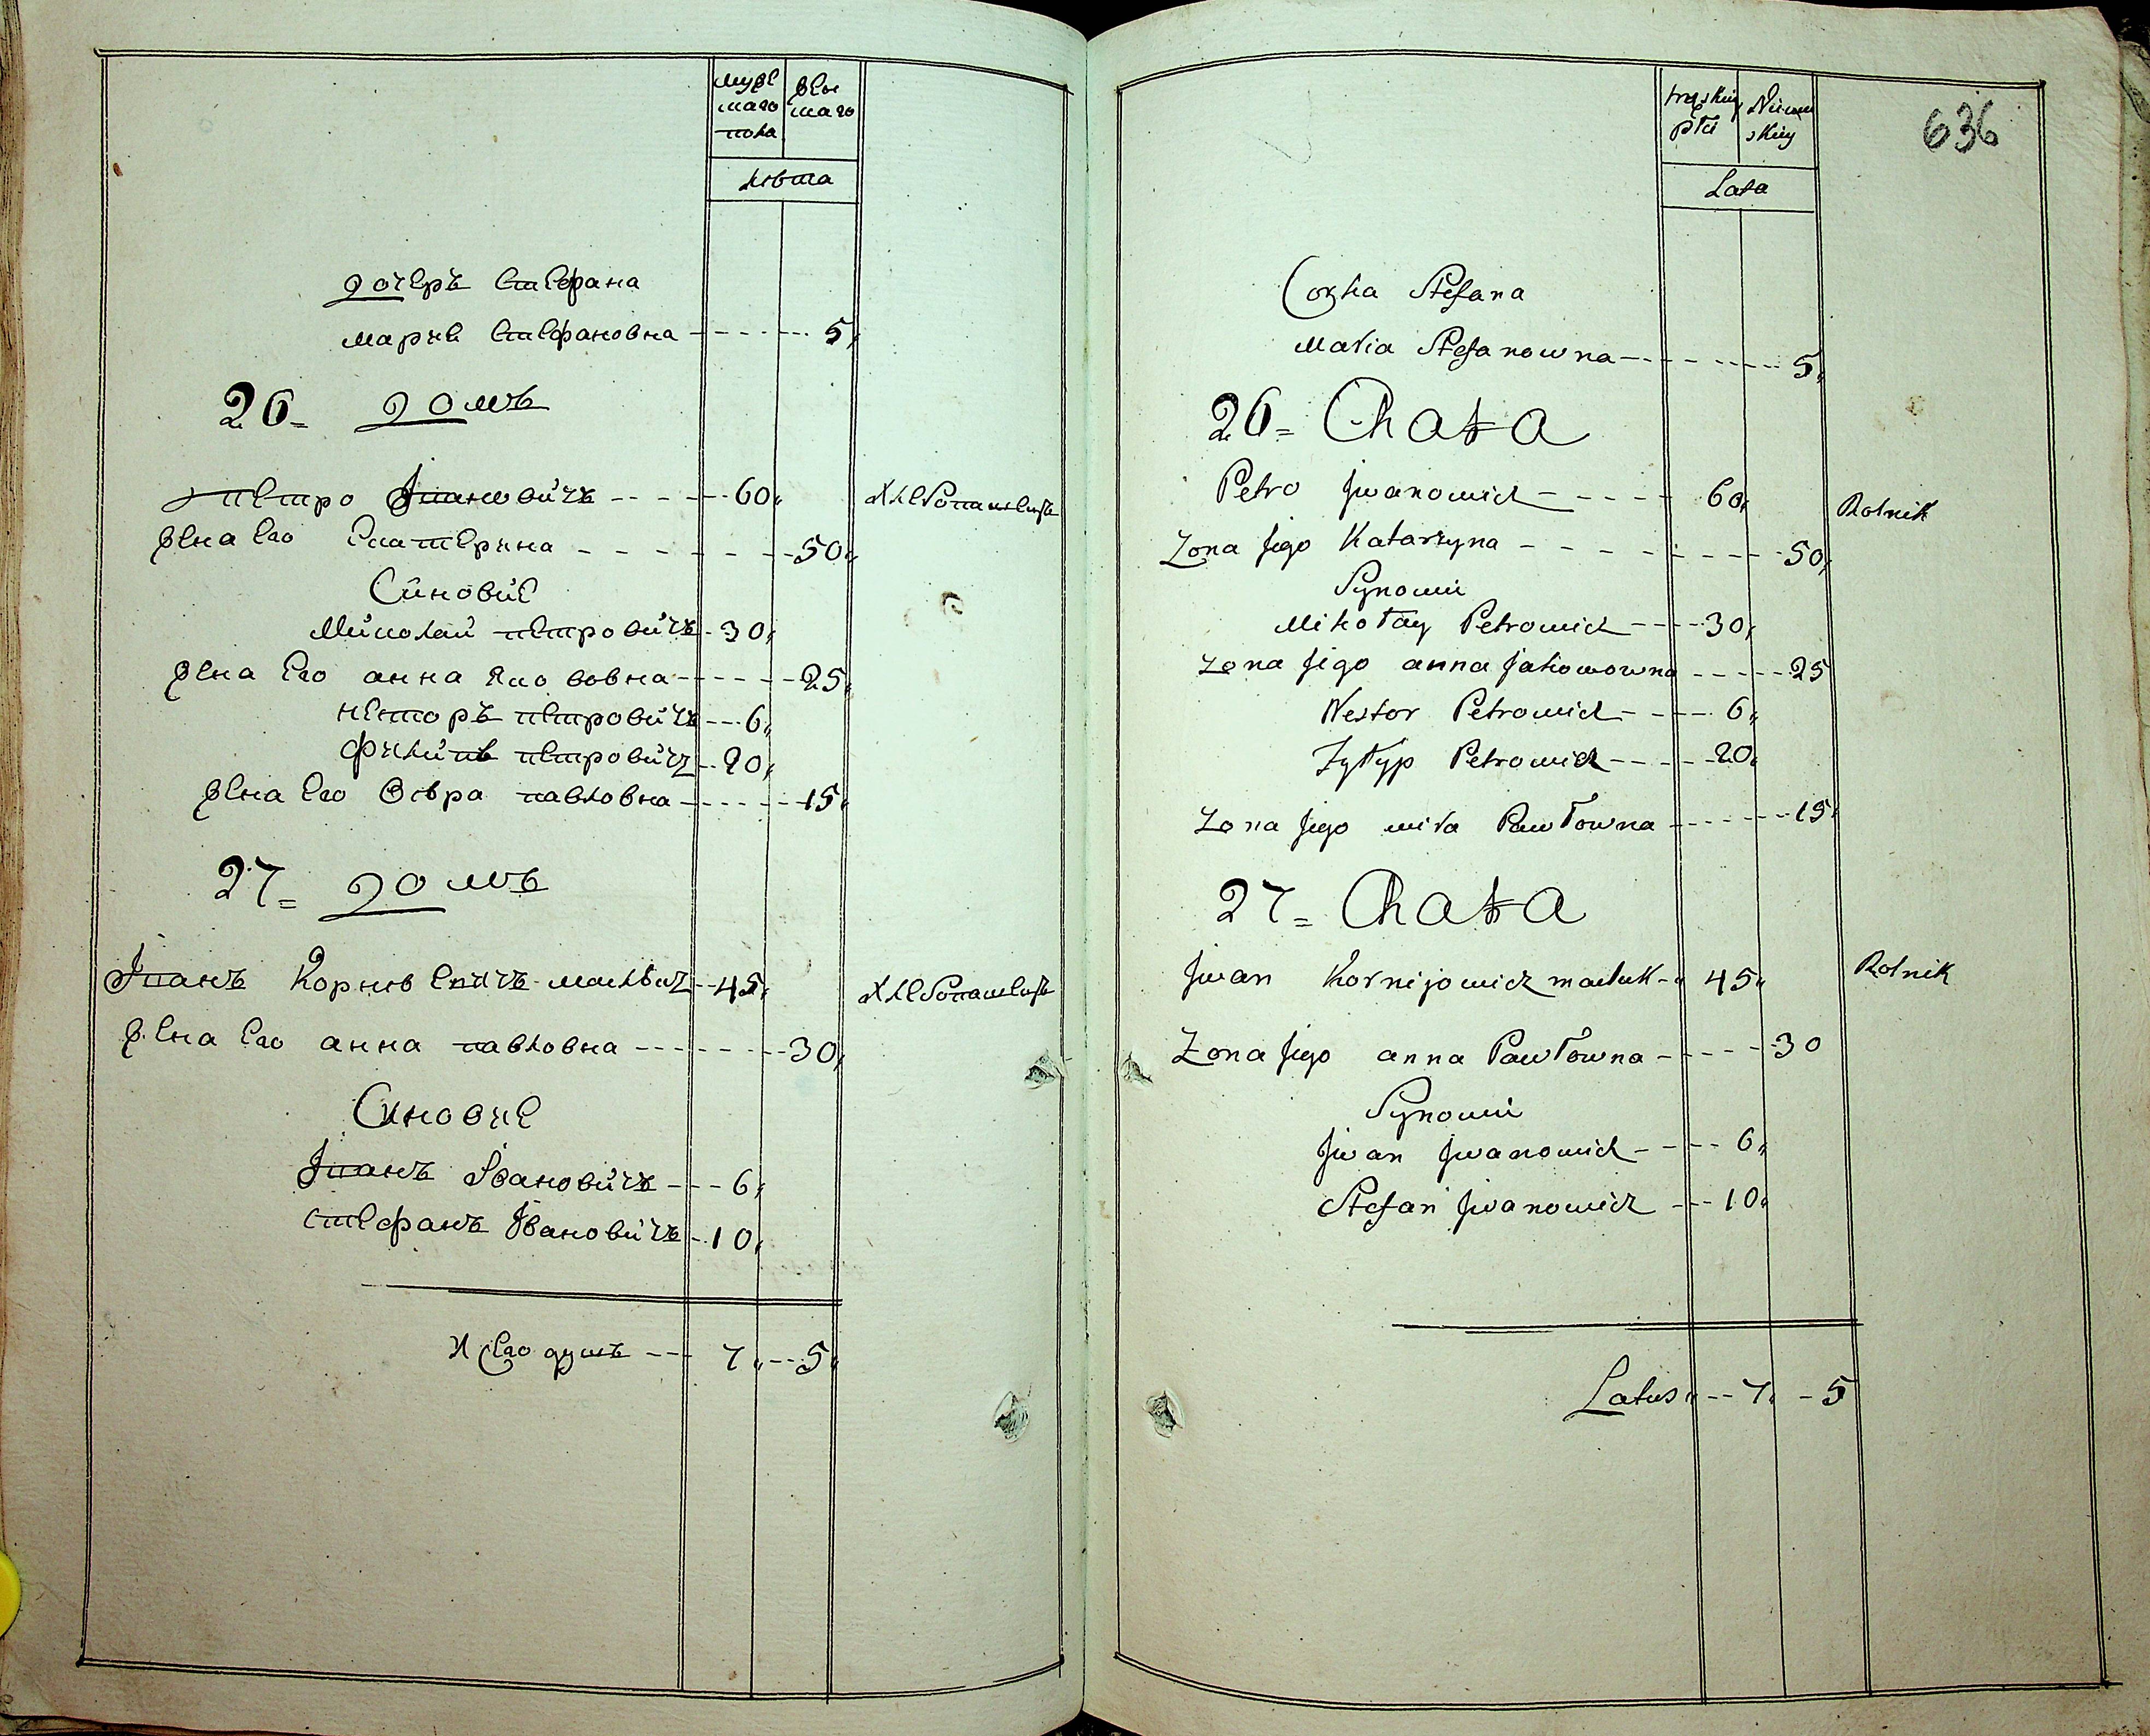 мужескаго пола | женскаго
лѣта
дочеръ Стефана
Мария Стефановна - - - - 5
26 = домъ
Петро Ивановичъ - - - - 60 Хлебопашецъ
жена его Екатерина - - - - 50
Синовие
Миколай Петровичъ - 30
жена его анна Якововна - - - - 25
Несторъ Петровичъ - - - 6
Филипъ Петровичъ - - 20
жена его Вѣра Павловна - - - - 15
27 = домъ
Иванъ Корнѣевичъ - - 45 Хлебопашецъ
жена его анна Павловна - - - - 30
Синовие
Иванъ Ивановичъ - - - 6
Стефанъ Ивановичъ - - 10
И того душъ - - - 7 - - 5
636
męskiey płci | Niewieskiey
Lata
Corka Stefana
Maria Stefanowna - - - - 5
26 = Chata
Petro Jwanowicz - - - - 60 Rolnik
Zona Jego Katarzyna - - - - 50
Synowie
Mikołay Petrowicz - - - 30
Zona Jego anna Jakowowna - - - - 25
Nestor Petrowicz - - - 6
Fylyp Petrowicz - - - - 20
Zona Jego wira Pawłowna - - - - 15
27 = Chata
Jwan Kornijowicz - 45 Rolnik
Zona Jego anna Pawłowna - - - - 30
Synowie
Jwan Jwanowicz - - - - 6
Stefan Jwanowicz - - - 10
Latus - - - 7 - 5